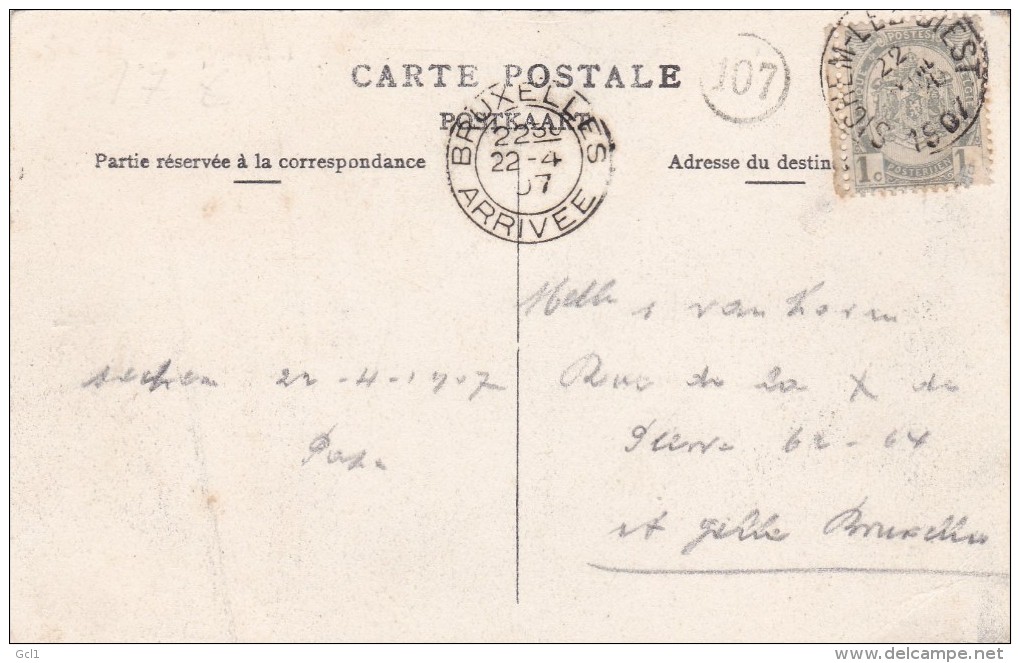 CARTE POSTALE
POSTKAART
107
BRUXELLES
22
22-4
07
ARRIVEE
SICHEM-LEZ-DIEST
22
POSTES
1C 1C
POSTERIJEN
Partie réservée à la correspondance
Adresse du destin
Melle s van Horm
Rue de la X de
Pierre 62-64
st gille Bruxelles
sichem 22-4-1907
Papa
Gcl1
www.delcampe.net